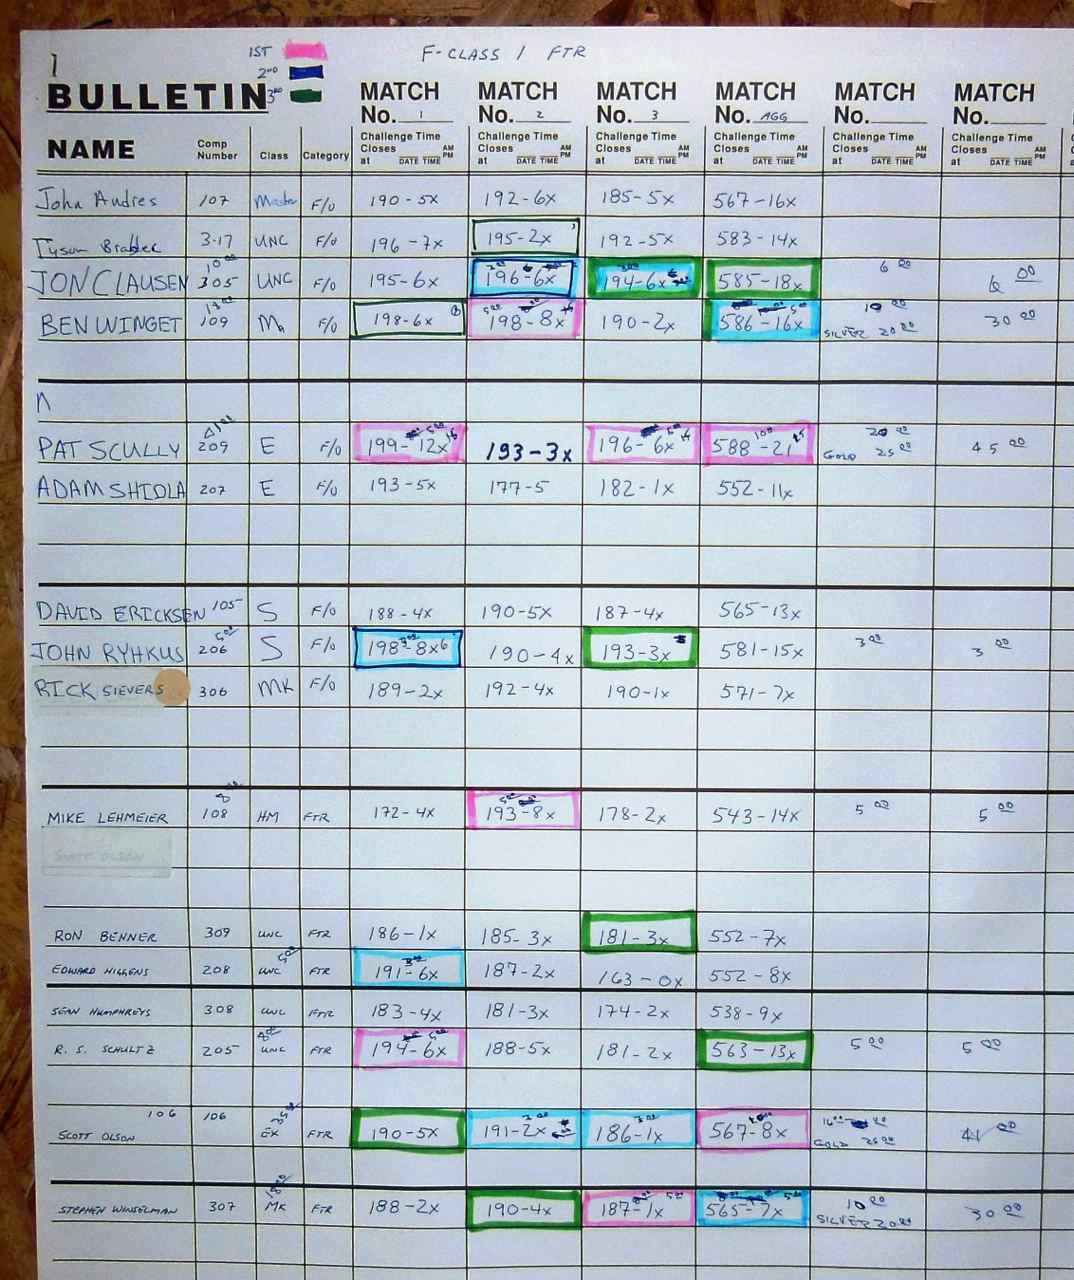 1
1ST
F-CLASS / FTR
2ND
3RD
BULLETIN
MATCH MATCH MATCH MATCH MATCH MATCH
No. 1 No. 2 No. 3 No. AGG No. No.
NAME Comp Number Class Category Challenge Time Closes at DATE TIME AM PM Challenge Time Closes at DATE TIME AM PM Challenge Time Closes at DATE TIME AM PM Challenge Time Closes at DATE TIME AM PM Challenge Time Closes at DATE TIME AM PM Challenge Time Closes at DATE TIME AM PM
John Andres 107 Master F/O 190-5x 192-6x 185-5x 567-16x
Tyson 317 UNC F/O 196-7x 195-2x 192-5x 583-14x
JON CLAUSEN 305 UNC F/O 195-6x 196-6x 194-6x 585-18x 6 00 6 00
BEN WINGET 109 M F/O 198-6x 198-8x 190-2x 586-16x 10 00 30 00
SILVER 20 00
n
PAT SCULLY 209 E F/O 199-12x 193-3x 196-6x 588-21 20 00 45 00
GOLD 25 00
ADAM SHIOLA 207 E F/O 193-5x 177-5 182-1x 552-11x
DAVID ERICKSEN 105 S F/O 188-4x 190-5x 187-4x 565-13x
JOHN RYHKUS 206 S F/O 198-8x 190-4x 193-3x 581-15x 3 00 3 00
RICK SIEVERS 306 MK F/O 189-2x 192-4x 190-1x 571-7x
MIKE LEHMEIER 108 HM FTR 172-4x 193-8x 178-2x 543-14x 5 00 5 00
SCOTT OLSON
RON BENNER 309 UNC FTR 186-1x 185-3x 181-3x 552-7x
EDWARD HIGGENS 208 UNC FTR 191-6x 187-2x 163-0x 552-8x
SEAN HUMPHREYS 308 UNC FTR 183-4x 181-3x 174-2x 538-9x
R. S. SCHULTZ 205 UNC FTR 194-6x 188-5x 181-2x 563-13x 5 00 5 00
106 106
SCOTT OLSON EX FTR 190-5x 191-2x 186-1x 567-8x 41 00
GOLD 25 00
STEPHEN WINSELMAN 307 MK FTR 188-2x 190-4x 187-1x 565-7x 10 00 30 00
SILVER 20 00